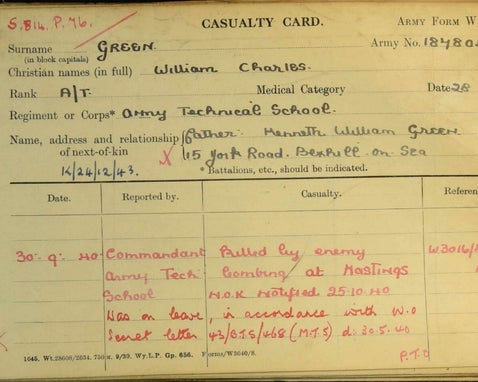 S.814. P.76.
CASUALTY CARD.
ARMY FORM W
Surname GREEN.
(in block capitals)
Army No. 18780
Christian names (in full) William Charles.
Rank A/T. Medical Category Date 28
Regiment or Corps* Army Technical School.
Name, address and relationship Father: Kenneth William GREEN.
of next-of-kin 15 York Road. Bexhill-on-Sea
K/24/12/43. X *Battalions, etc., should be indicated.
Date. Reported by. Casualty. Referen
30. 9. 40 Commandant Killed by enemy W3016/
Army Tech bombing at Hastings
School N.O.K Notified 25.10.40
Was on leave, in accordance with W.O
Secret letter 43/B.T.S/468 (M.T.5) d. 30.5.40
P.T.O
1645. Wt.28608/2634. 750 9/39. Wy.L.P. Gp. 656. Forms/W3040/8.